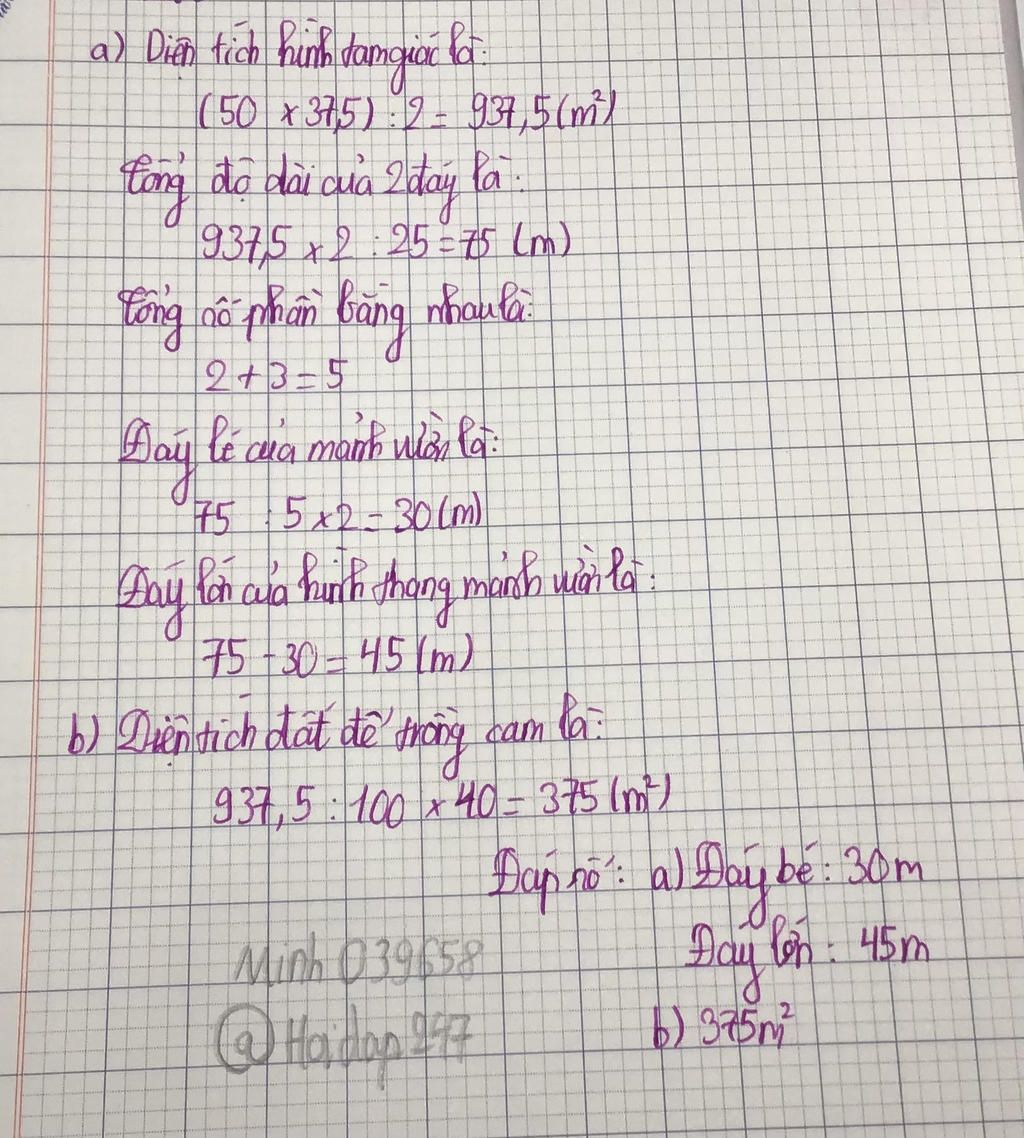 a) Diện tích hình tam giác là:
(50 x 37,5) : 2 = 937,5 (m²)
Tổng độ dài của 2 đáy là:
937,5 x 2 : 25 = 75 (m)
Tổng số phần bằng nhau là:
2 + 3 = 5
Đáy bé của mảnh vườn là:
75 : 5 x 2 = 30 (m)
Đáy lớn của hình thang mảnh vườn là:
75 - 30 = 45 (m)
b) Diện tích đất để trồng cam là:
937,5 : 100 x 40 = 375 (m²)
Đáp số: a) Đáy bé: 30m
Đáy lớn: 45m
b) 375m²
Minh 039658
@Hoidap247